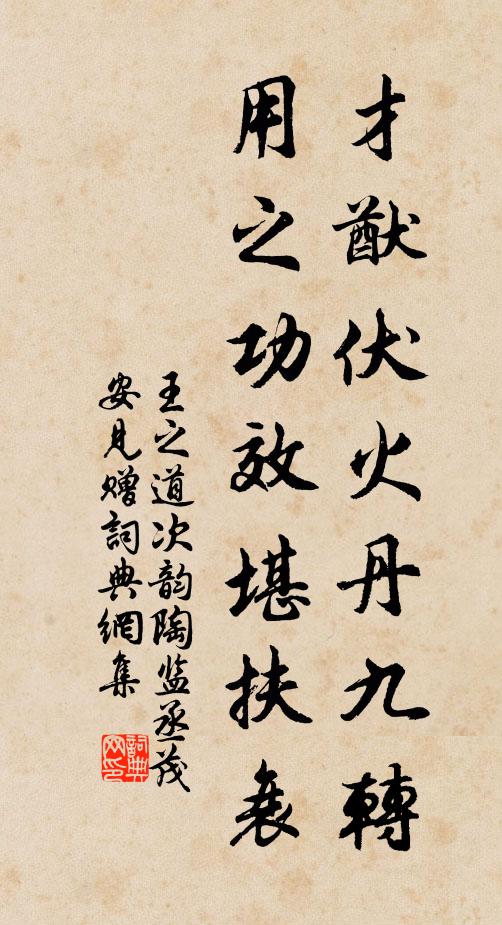 才猷伏火丹九轉
用之功效堪扶衰
王之道次韵陶监丞茂
安見贈詞典網集
詞典
网印